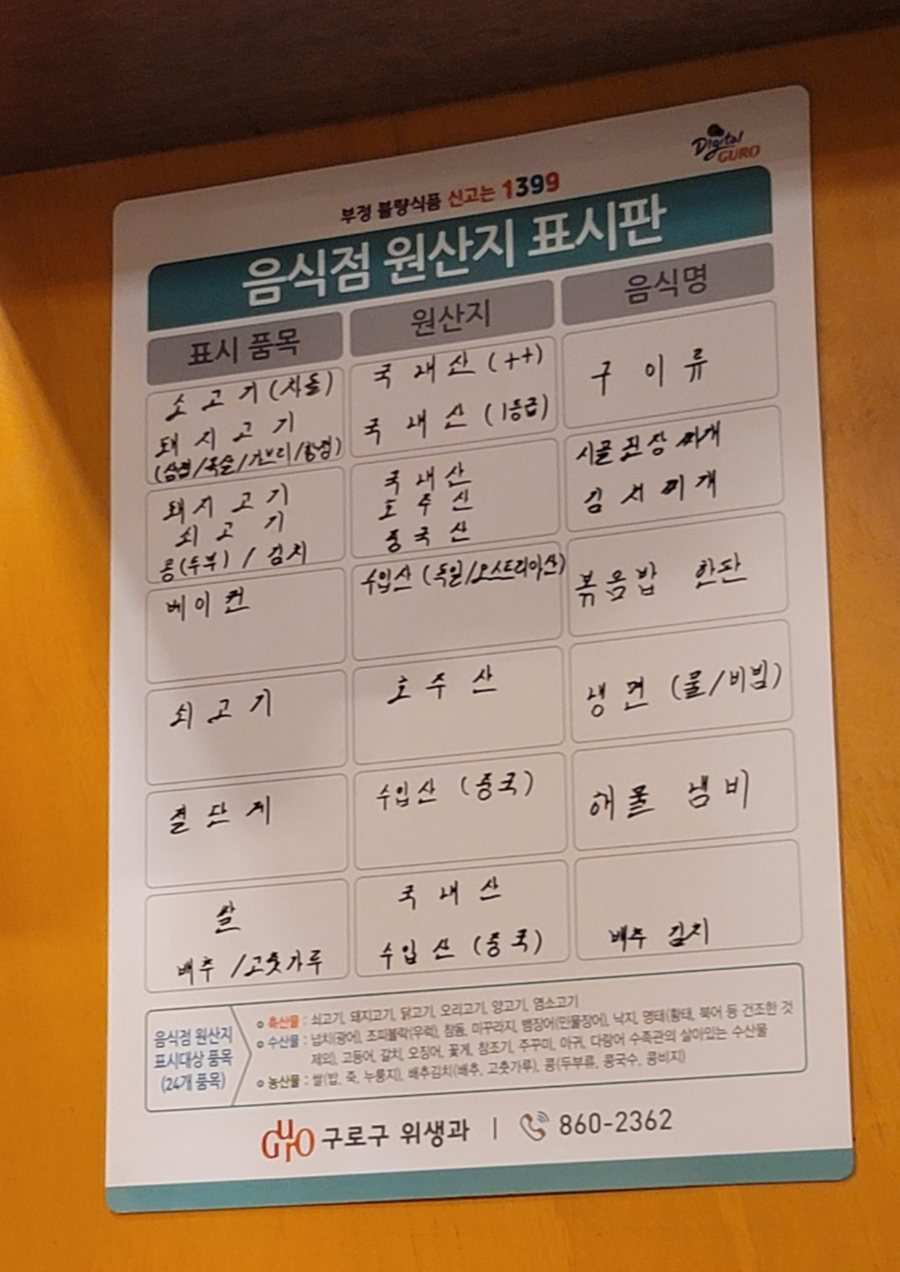 Digital GURO
부정 불량식품 신고는 1399
음식점 원산지 표시판
표시 품목 원산지 음식명
소고기(차돌) 국내산(++) 구이류
돼지고기 국내산(1등급)
(삼겹/목살/가브리/항정)
돼지고기 국내산 시골된장찌개
쇠고기 호주산 김치찌개
콩(두부) / 김치 중국산
베이컨 수입산(독일/오스트리아산) 볶음밥 한판
쇠고기 호주산 냉면 (물/비빔)
절단게 수입산(중국) 해물 냄비
쌀 국내산
배추/고춧가루 수입산(중국) 배추 김치
음식점 원산지
표시대상 품목
(24개 품목)
축산물 : 쇠고기, 돼지고기, 닭고기, 오리고기, 양고기, 염소고기
수산물 : 넙치(광어), 조피볼락(우럭), 참돔, 미꾸라지, 뱀장어(민물장어), 낙지, 명태(황태, 북어 등 건조한 것
제외), 고등어, 갈치, 오징어, 꽃게, 참조기, 주꾸미, 아귀, 다랑어 수족관의 살아있는 수산물
농산물 : 쌀(밥, 죽, 누룽지), 배추김치(배추, 고춧가루), 콩(두부류, 콩국수, 콩비지)
GURO 구로구 위생과 | 860-2362